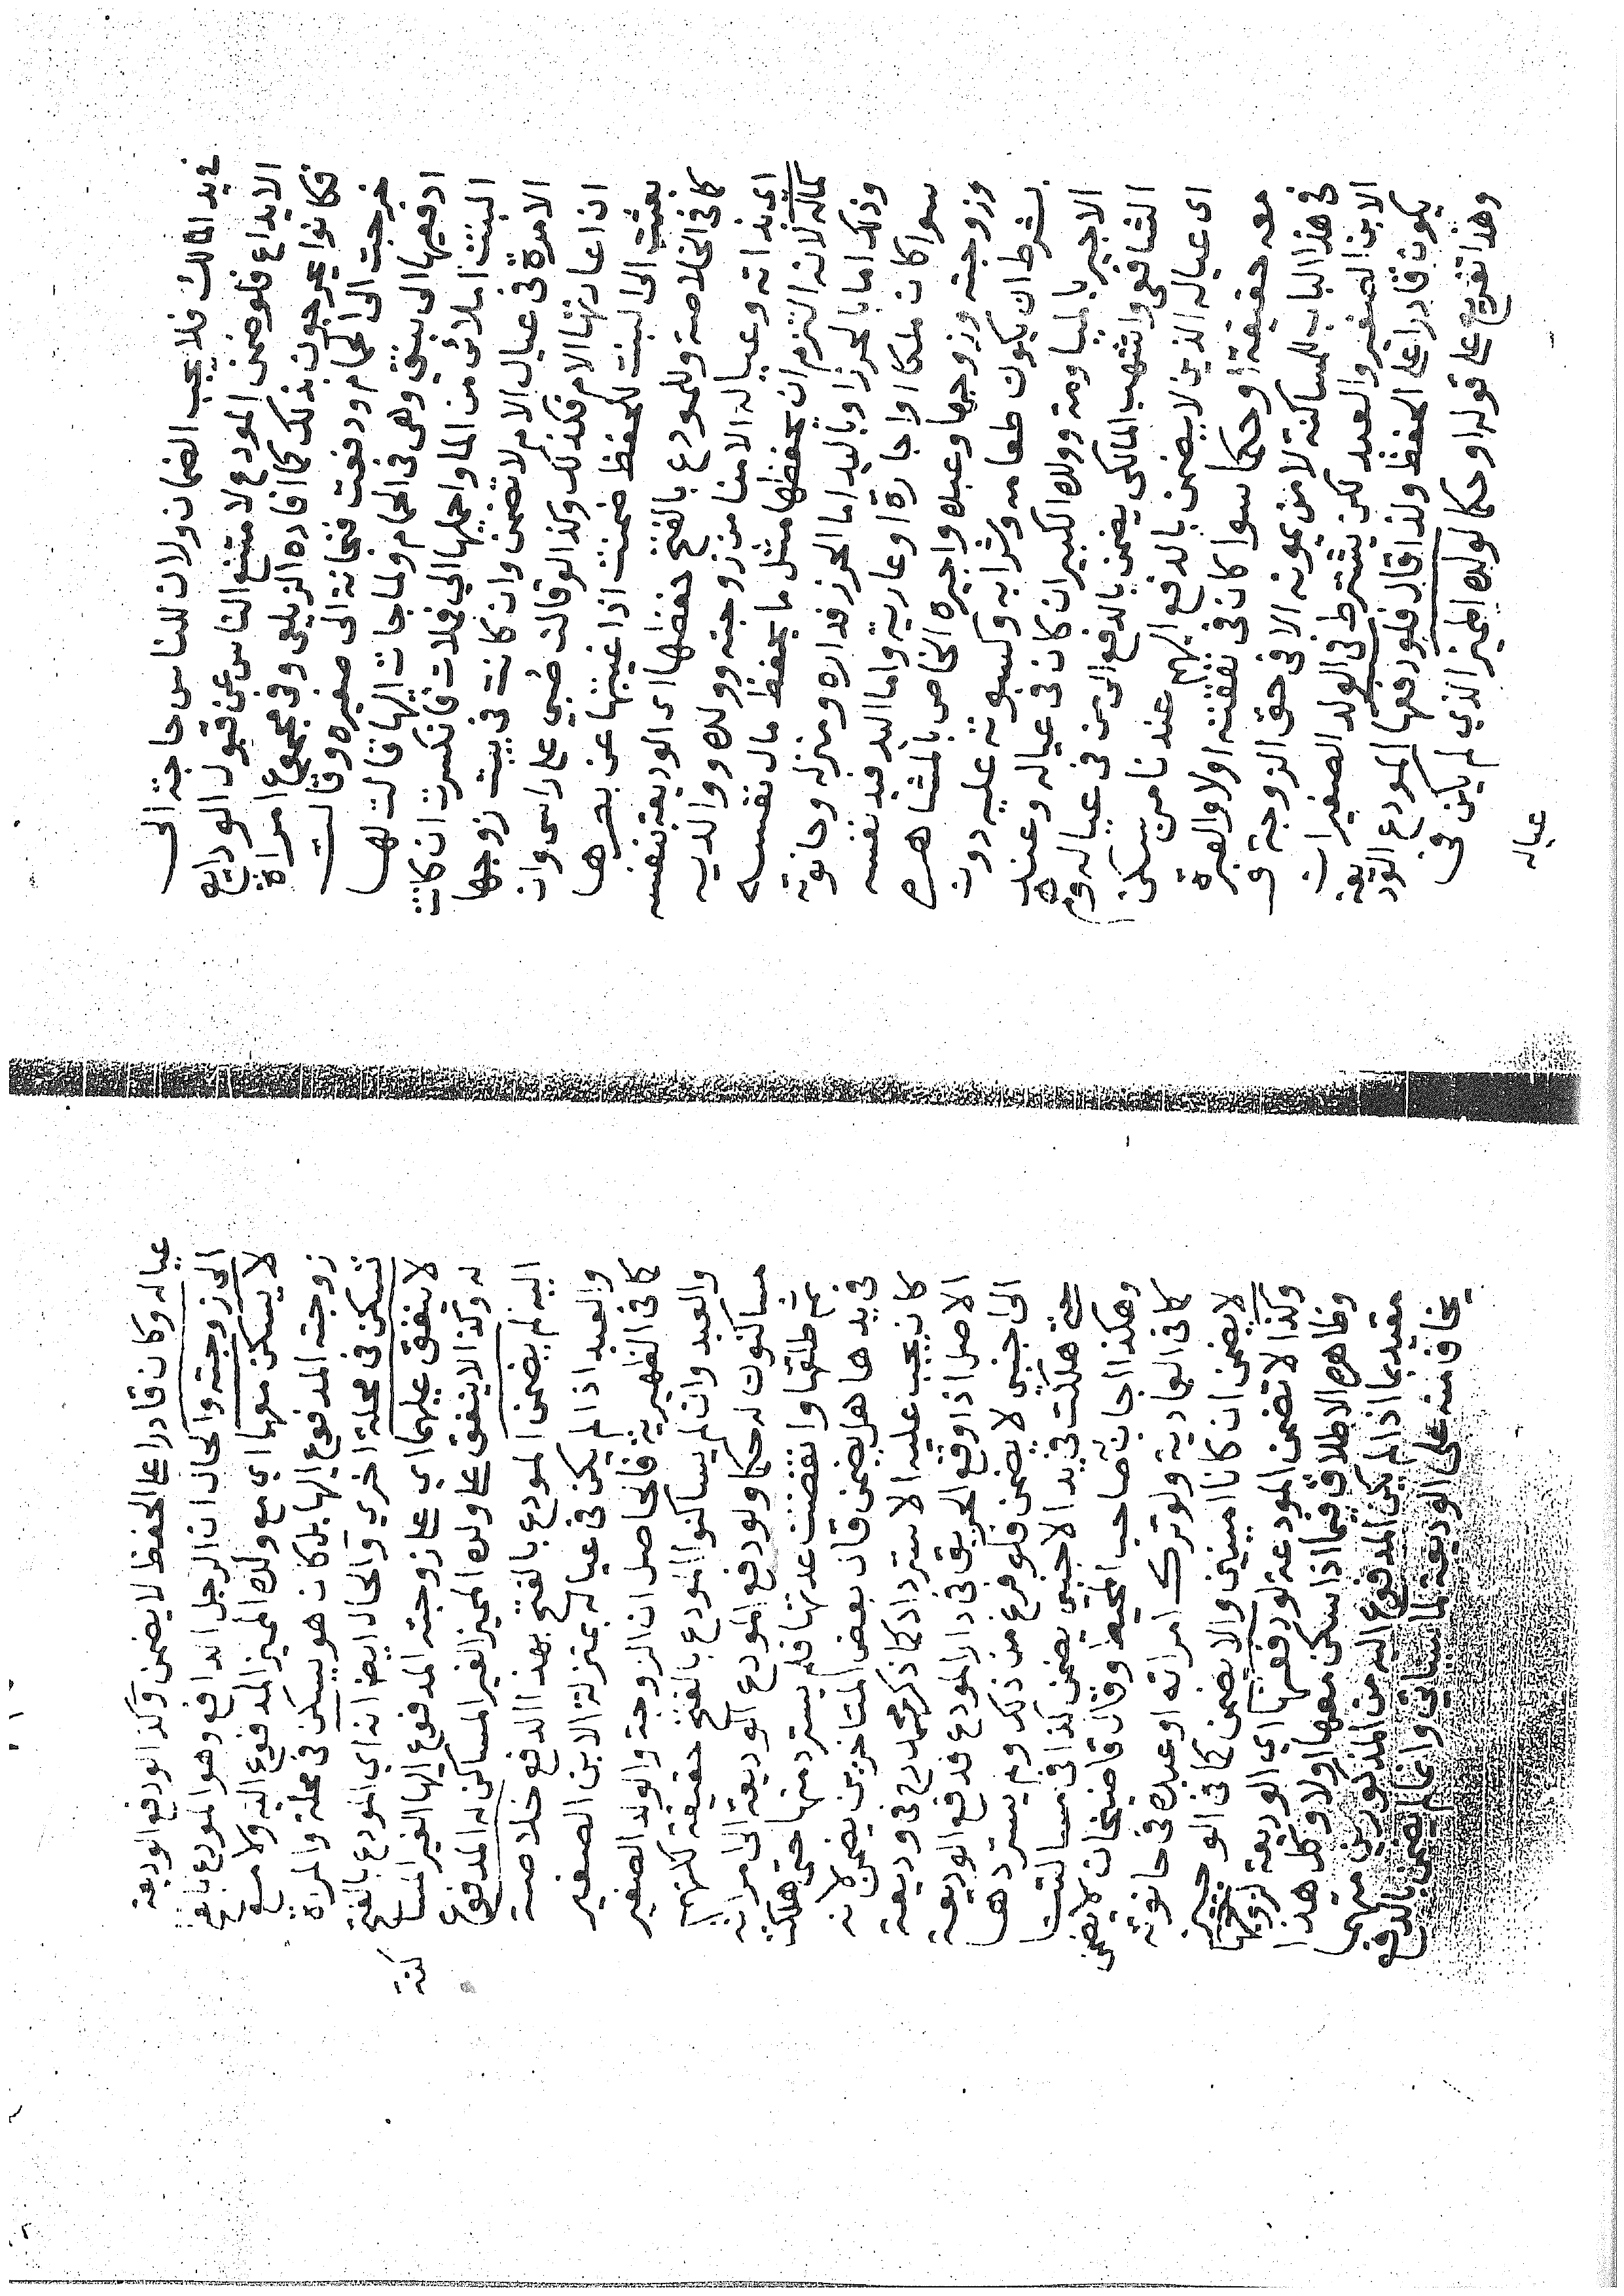 في يد المالك فلا يجب الضمان ولان للناس حاجة الى
الايداع فلو ضمن المودع لامتنع الناس عن قبول الودايع
فكانوا يحرجون بذلك كما افاده الزيلعي وفي مجموع امراة
خرجت الى الحمام ودفعت فنجانة الى صغيره وقالت
ادفعيها الى بنتي وهي في الحمام ولما جات اليها قالت لها
البنت املائ من الما واحمليها الي فملات فانكسرت ان كانت
الامرة في عيال الام لا تضمن وان كانت في بيت زوجها
ان اعارتها الام فكذلك وكذا لو قالت ضبي على راسي وان
بعثت الى البنت للحفظ ضمنت اذا غيبتها عن بصرها
كما في الخلاصة وللمودع بالفتح حفظها اى الوديعة بنفسه
اى بذاته وعياله الامنا من زوجته وولده ووالديه
كماله لانه التزم ان يحفظها مثل ما يحفظ مال نفسه
وذلك اما بالحرز او باليد اما الحرز فداره ومنزله وحانوته
سوا كان ملكا او اجارة او عارية واما اليد فيد نفسه
وزوجته وزوجها وعبده واجيره الخاص بالمشاهره
بشرط ان يكون طعامه وشرابه وكسوته عليه دون
الاجير بالمياومة وولده الكبير ان كان في عياله وعند
الشافعي واشهب المالكي يضمن بالدفع الى من في عياله وهم
اى عياله الذين لا يضمن بالدفع اليهم عندنا من يسكن
معه حقيقة او حكما سوا كان في نفقته اولا والعبرة
في هذا الباب للمساكنة لا من يمونه الا في حق الزوجة و
الابن الصغير والعبد لكن يشترط في الولد الصغير ان
يكون قادرا على الحفظ ولذا قال فلو دفعها المودع الوديعة
وهذا تفريع على قوله او حكما لولده المميز الذي لم يكن في
عياله
عياله وكان قادرا على الحفظ لا يضمن وكذا لو دفع الوديعة
الى زوجته والحال ان الرجل الدافع وهو المودع بالفتح
لا يسكن معهما اي مع ولده المميز المدفوع اليه ولا مع
زوجته المدفوع اليها بل كان هو يسكن في محلة والمرة
تسكن في محلة اخري والحال ايضا انه اي المودع بالفتح
لا ينفق عليهما اي على زوجته المدفوع اليها الغير المساكنة
له وكذا لا ينفق على ولده المميز الغير المساكن له المدفوع
اليه لم يضمن المودع بالفتح بهذا الدفع خلاصة
والعبد اذا لم يكن في عياله بمنزلة الابن الصغير
كما في الظهيرية فالحاصل ان الزوجة والولد الصغير
والعبد وان لم يساكنوا المودع بالفتح حقيقة لكنهم
مساكنون له حكما ولو دفع المودع الوديعة الى امراته
ثم طلقها وانقضت عدتها فلم يسترد منها حتى هلكت
في يدها هل يضمن قال بعض المتاخرين يضمن لانه
كان يجب عليه الاسترداد كما ذكر محمد رح في وديعة
الاصل اذا وقع الحريق في دار المودع فدفع الوديعة
الى اجنبي لا يضمن فلو فرغ من ذلك ولم يستردها
حتى هلكت في يد الاجنبي يضمن كذا في مسالتنا
وهكذا اجاب صاحب المحيط وقال قاضيخان لا يضمن
كما في العمادية ولو ترك امراته او عبده في حانوته
لا يضمن ان كانا امينين والا يضمن كما في الوجيز
وكذا لا تضمن المودعة لو دفعتها اي الوديعة لزوجها
وظاهره الاطلاق فيما اذا سكن معها اولا وكل هذا
مقيد بما اذا لم يكن المدفوع اليه من المذكورين متهما
يخاف منه على الوديعة لما سياتي وانما لم يضمن بالدفع